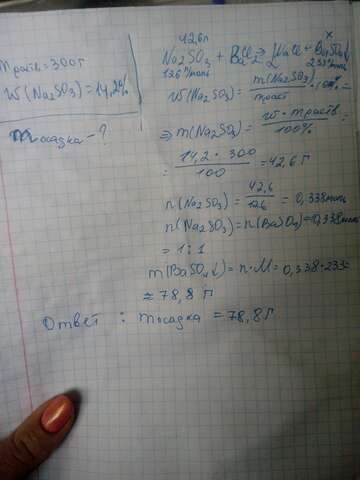 m раств = 300г
W(Na2SO3) = 14,2%
m осадка - ?
42,6г x
Na2SO3 + BaCl2 → 2NaCl + BaSO4↓
126 г/моль 233 г/моль
W(Na2SO3) = m(Na2SO3) / m раст · 100% =
⇒ m(Na2SO3) = W · m раств / 100% =
= 14,2 · 300 / 100 = 42,6 г
n(Na2SO3) = 42,6 / 126 = 0,338 моль
n(Na2SO3) = n(BaSO4) = 0,338 моль
= 1:1
m(BaSO4↓) = n · M = 0,338 · 233 =
≈ 78,8 г
Ответ : m осадка = 78,8 г